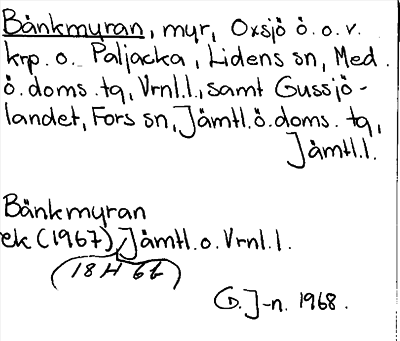 Bänkmyran, myr, Oxsjö ö. o. v.
krp. o. Paljacka, Lidens sn, Med.
ö. doms. tg, Vrnl.l., samt Gussjö-
landet, Fors sn, Jämtl. ö. doms. tg,
Jämtl.l.
Bänkmyran
ek (1967), Jämtl. o. Vrnl.l.
(18H 6b)
G. J-n. 1968.